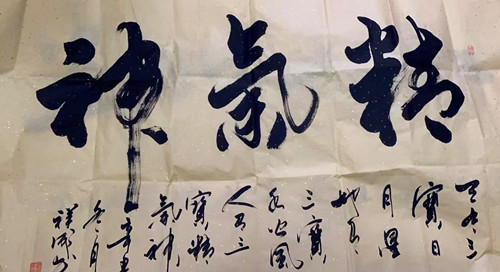 精氣神
天有三
寶日
月星
地有
三寶
水火風
人有三
寶精
氣神
辛丑
冬月